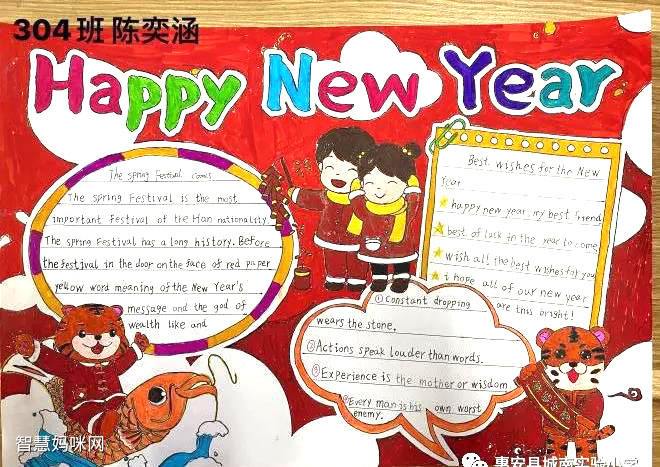 304班 陈奕涵
Happy New Year
The spring Festival comes
The spring Festival is the most
important Festival of the Han nationality.
The spring Festival has a long history. Before
the festival in the door on the face of red paper
yellow word meaning of the New Year's
message and the god of
wealth like and
Best wishes for the New
Year
happy new year, my best friend
best of luck in the year to come
wish all the best wishes for you
i hope all of our new year
are this bright!
①Constant dropping
wears the stone.
②Actions speak louder than words.
③Experience is the mother or wisdom
④Every man is his own worst
enemy.
智慧妈咪网
惠安县城南实验小学